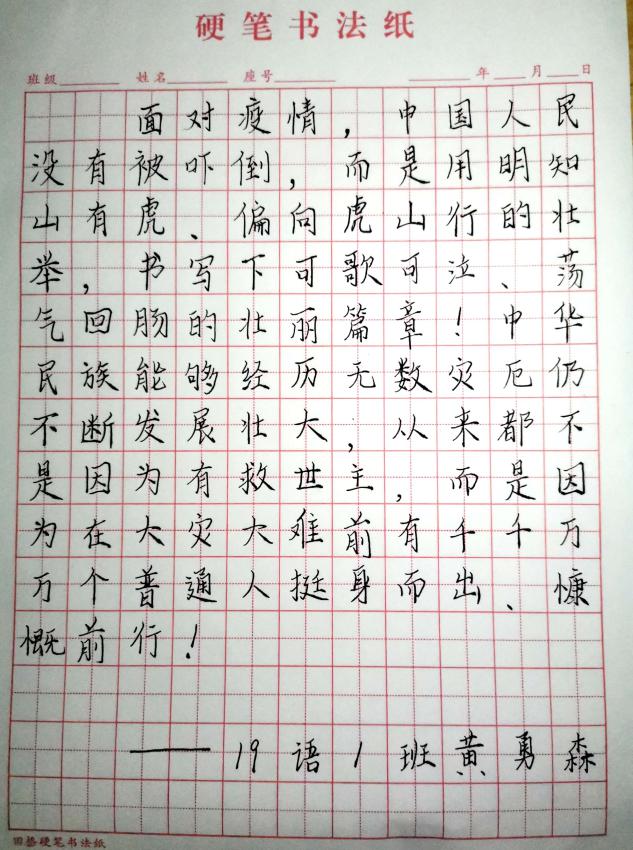 硬笔书法纸
班级 姓名 座号 年 月 日
面对疫情，中国人民
没有被吓倒，而是用明知
山有虎、偏向虎山行的壮
举，书写下可歌可泣、荡
气回肠的壮丽篇章！中华
民族能够经历无数灾厄仍
不断发展壮大，从来都不
是因为有救世主，而是因
为在大灾大难前有千千万
万个普通人挺身而出、慷
慨前行！
——19语1班黄勇森
田楷硬笔书法纸